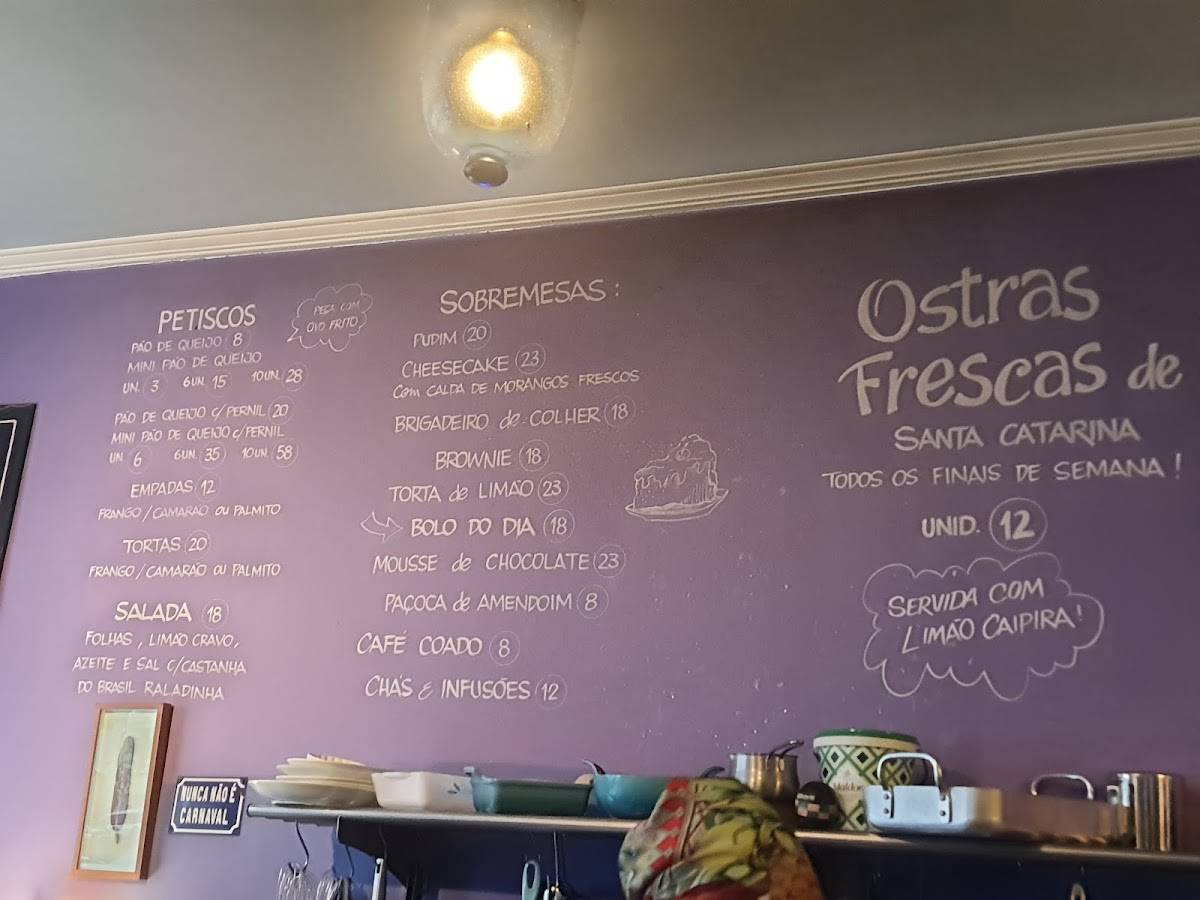 PETISCOS
PÃO DE QUEIJO 8
MINI PÃO DE QUEIJO
UN. 3 6UN. 15 10UN. 28
PEÇA COM
OVO FRITO
PÃO DE QUEIJO c/PERNIL 20
MINI PÃO DE QUEIJO c/PERNIL
UN 6 6UN. 35 10UN. 58
EMPADAS 12
FRANGO/CAMARÃO OU PALMITO
TORTAS 20
FRANGO/CAMARÃO OU PALMITO
SALADA 18
FOLHAS, LIMÃO CRAVO,
AZEITE E SAL C/CASTANHA
DO BRASIL RALADINHA
SOBREMESAS:
PUDIM 20
CHEESECAKE 23
Com CALDA DE MORANGOS FRESCOS
BRIGADEIRO de COLHER 18
BROWNIE 18
TORTA de LIMÃO 23
BOLO DO DIA 18
MOUSSE de CHOCOLATE 23
PAÇOCA de AMENDOIM 8
CAFÉ COADO 8
CHÁS E INFUSÕES 12
Ostras
Frescas de
SANTA CATARINA
TODOS OS FINAIS DE SEMANA!
UNID. 12
SERVIDA COM
LIMÃO CAIPIRA!
NUNCA NÃO É
CARNAVAL
Maldon